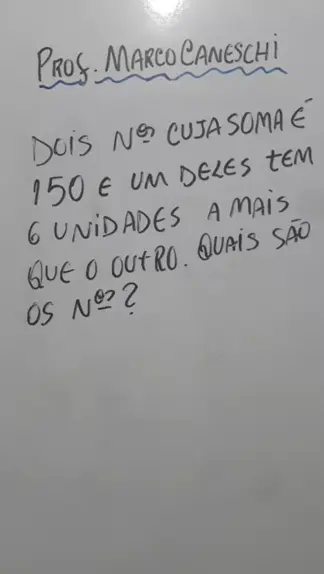 PROF. MARCO CANESCHI
DOIS Nºs CUJA SOMA É
150 E UM DELES TEM
6 UNIDADES A MAIS
QUE O OUTRO. QUAIS SÃO
OS Nºs?